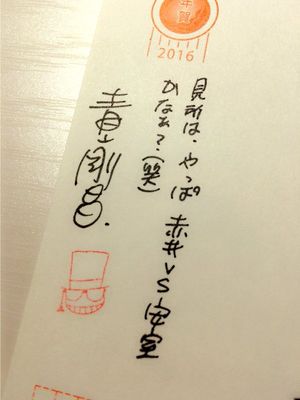 年賀
2016
見所は、やっぱ 赤井VS安室
かなぁ？(笑)
青山剛昌.